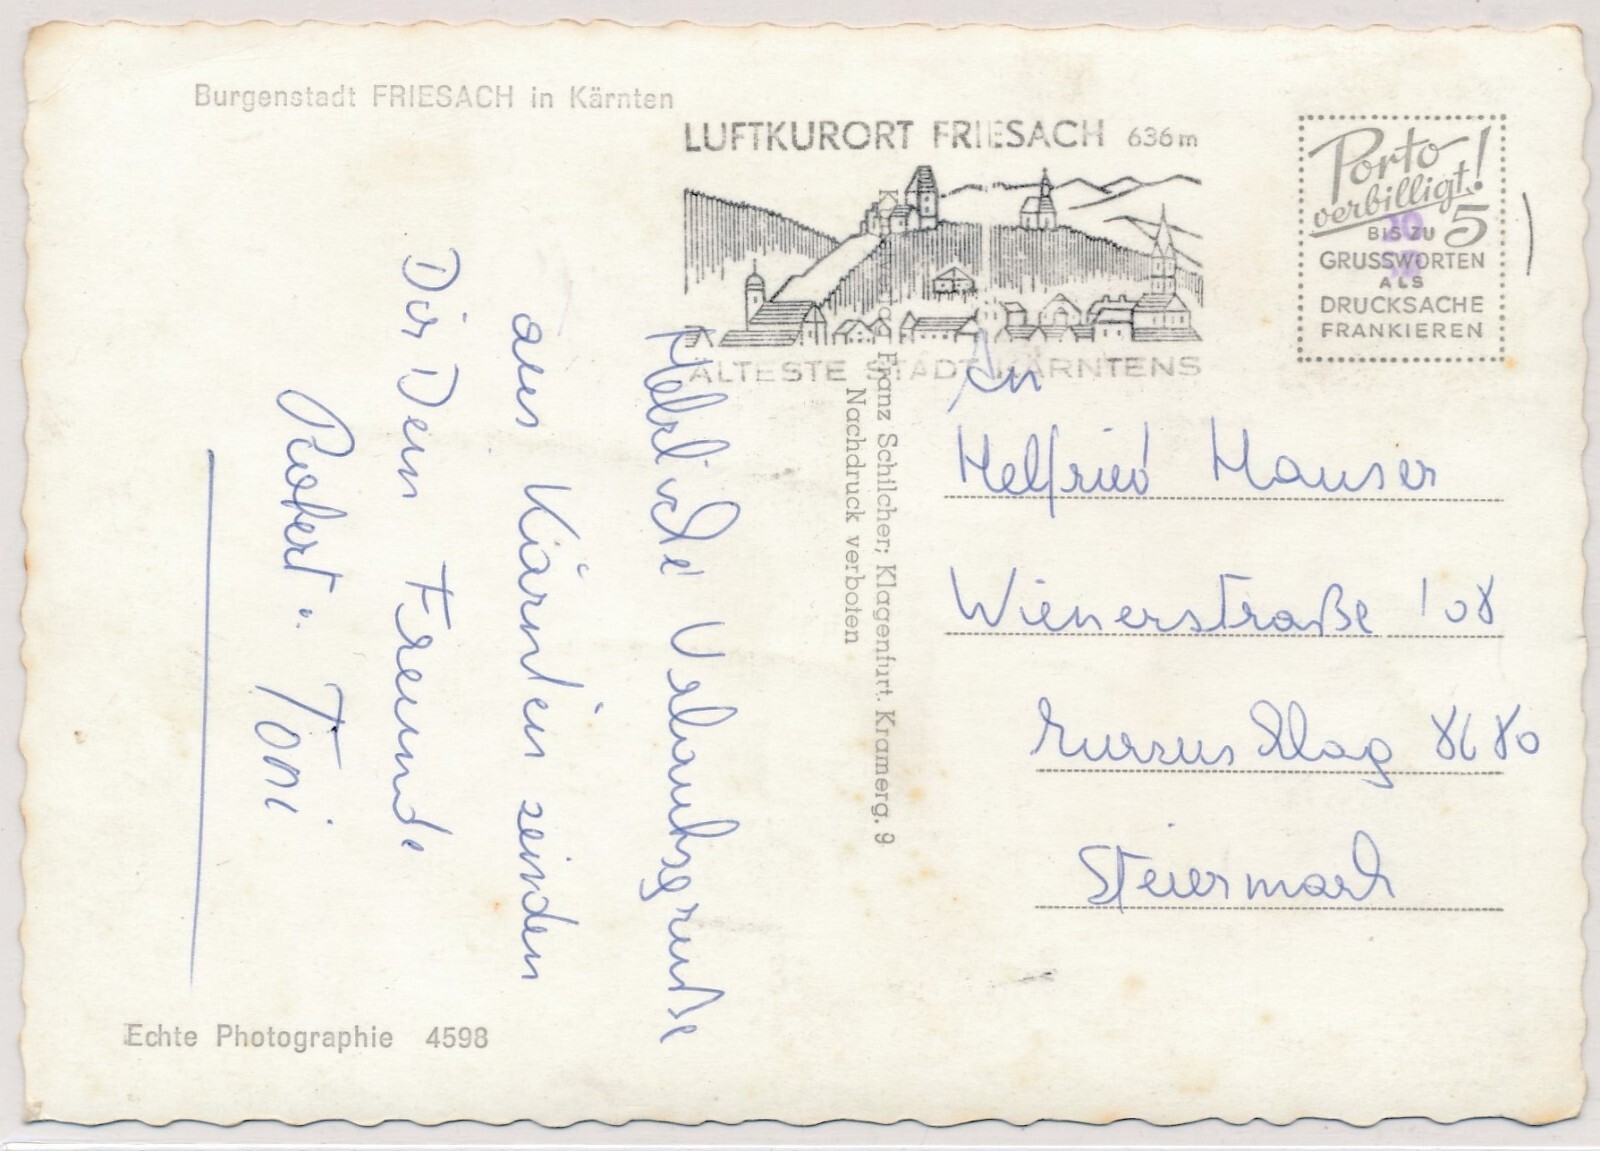 Burgenstadt FRIESACH in Kärnten
LUFTKURORT FRIESACH 636m
ÄLTESTE STADT KÄRNTENS
Porto
verbilligt!
BIS ZU 5
GRUSSWORTEN
ALS
DRUCKSACHE
FRANKIEREN
Herliche Urlaubsgrüße
aus Kärnten seinden
Dir Dein Freunde
Robert u. Toni
Franz Schilcher; Klagenfurt. Kramerg. 9
Nachdruck verboten
An
Helfried Hauser
Wienerstraße 108
8680
Steiermark
Echte Photographie 4598